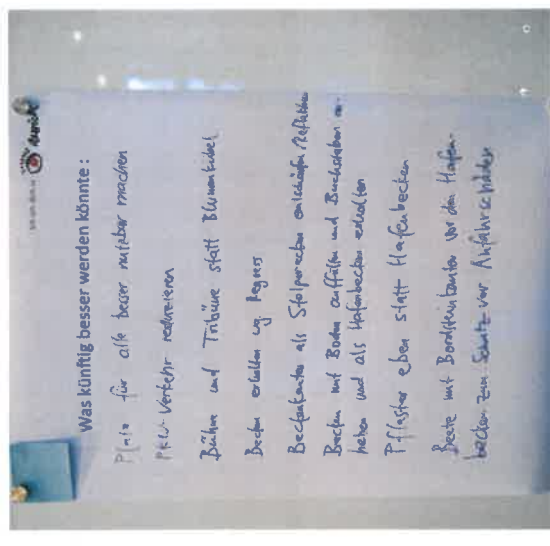 Was künftig besser werden könnte:
Platz für alle besser nutzbar machen
PKW-Verkehr reduzieren
Bühne und Tribüne statt Blumenkübel
Becken erhalten wg. Regress
Beckenkanten als Stolperecken entschärfen
Becken mit Boden auffüllen und Buchstaben er-
heben und als Hafenbecken erhalten
Pflaster eben statt Hafenbecken
Beete mit Bordsteinkanten vor den Hafen-
becken zum Schutz vor Anfahrschäden